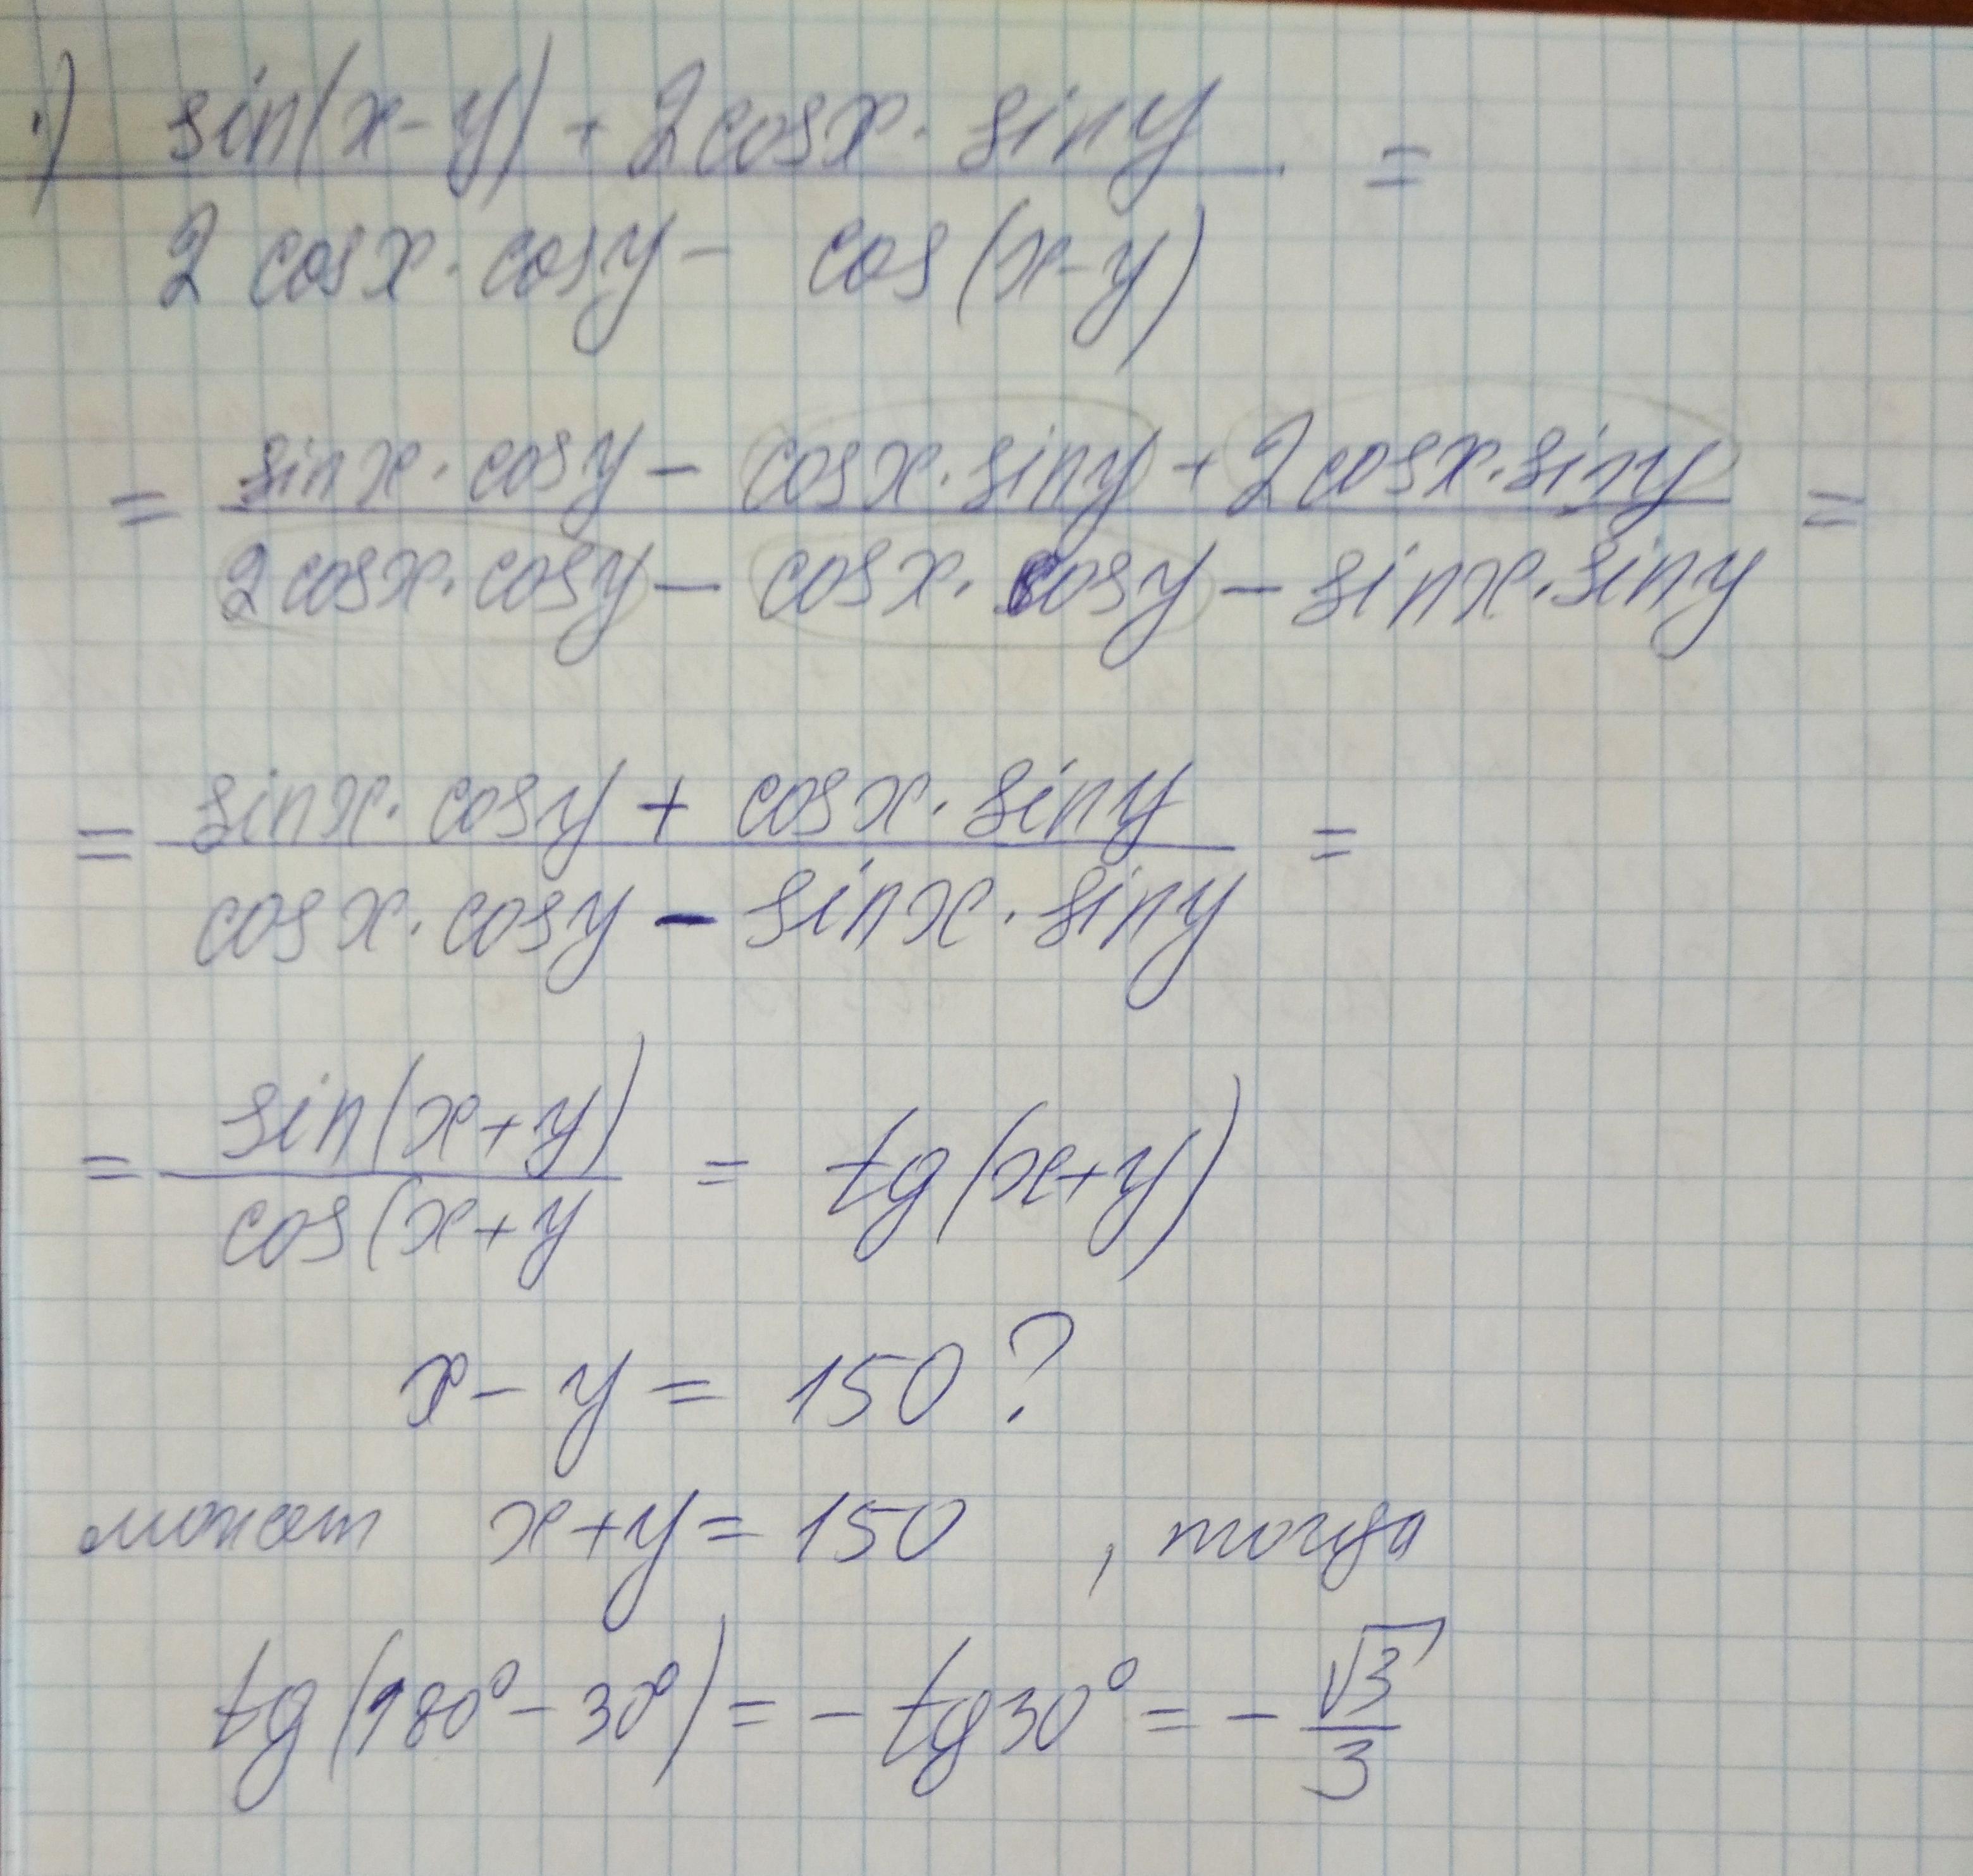 1) sin(x-y) + 2cosx · siny =
2 cosx · cosy - cos(x-y)
= sinx · cosy - cosx · siny + 2cosx · siny =
2cosx · cosy - cosx · cosy - sinx · siny
= sinx · cosy + cosx · siny =
cosx · cosy - sinx · siny
= sin(x+y) = tg(x+y)
cos(x+y
x - y = 150 ?
может x + y = 150 , тогда
tg(180° - 30°) = - tg30° = - √3
3